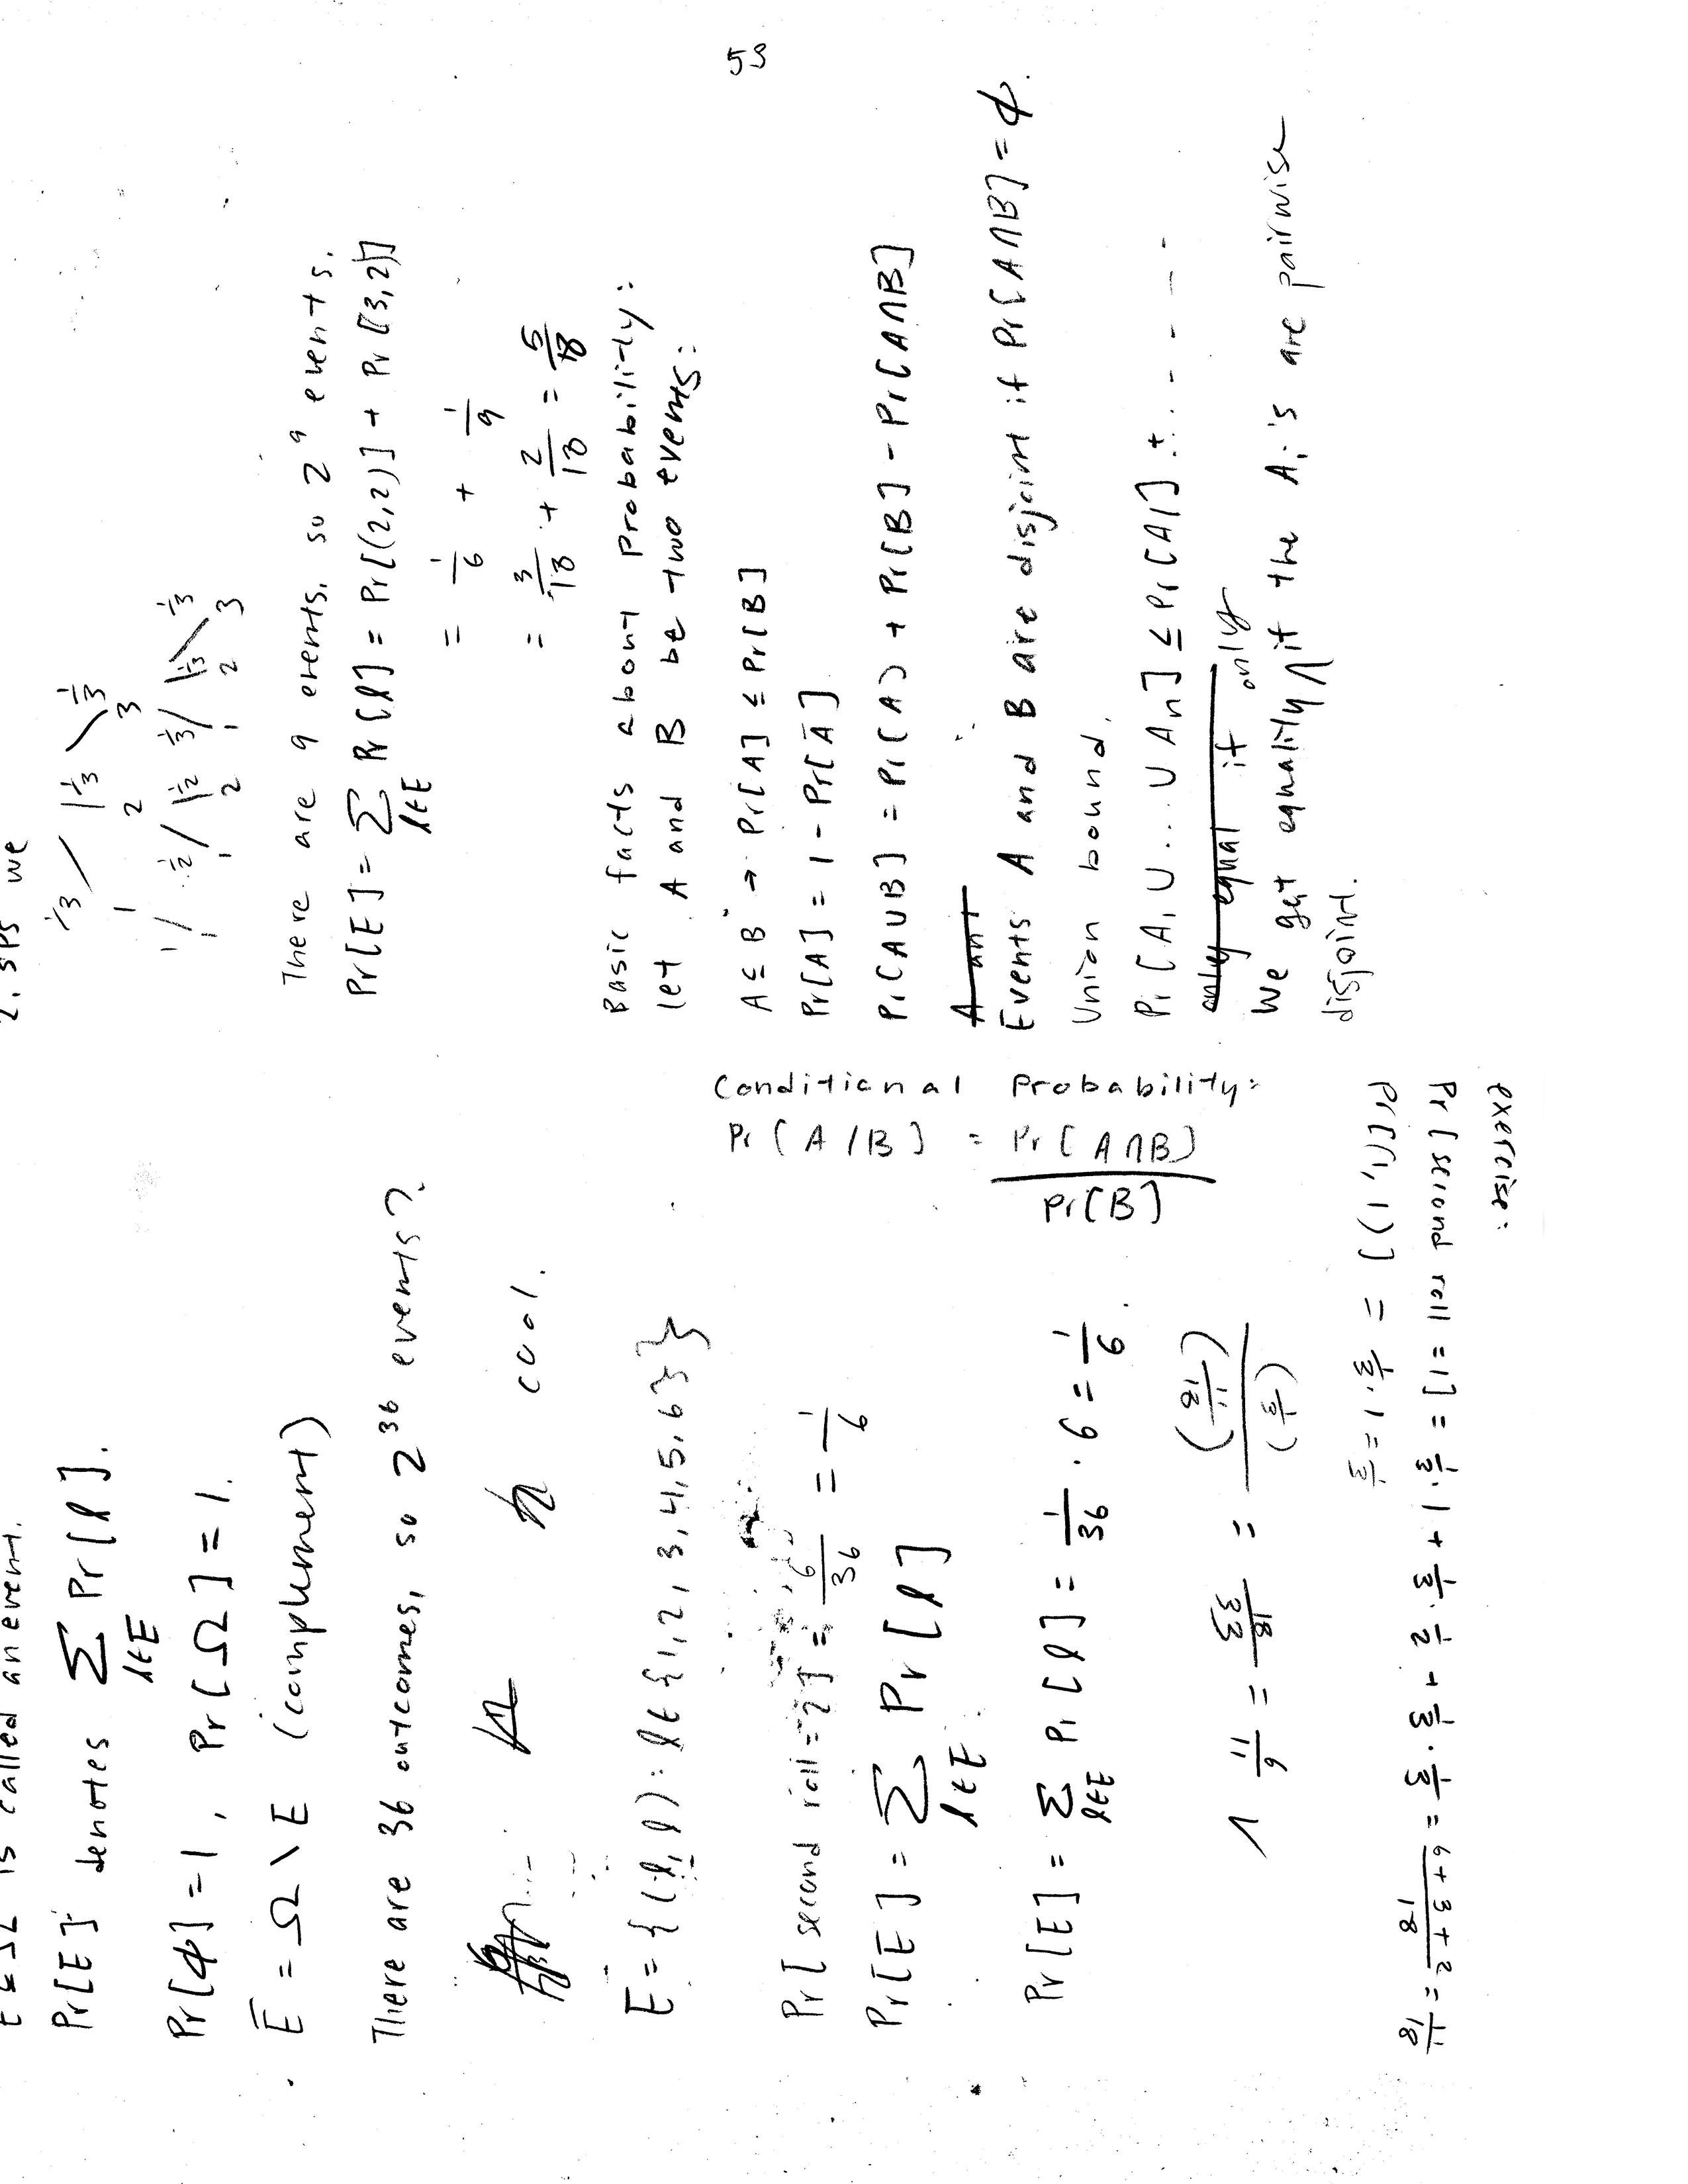 E ⊆ Ω is called an event.
Pr[E] denotes Σ Pr[l].
l∈E
Pr[ϕ]=1, Pr[Ω]=1.
E̅ = Ω \ E (complement)
There are 36 outcomes, so 2^36 events?
cool.
E = {(l, l): l ∈ {1, 2, 3, 4, 5, 6}}
Pr[second roll=2] = 6/36 = 1/6
Pr[E] = Σ Pr[l]
l∈E
Pr[E] = Σ Pr[l] = 1/36 · 6 = 1/6.
l∈E
2. sps we
1/3 1/3 1/3
1 2 3
1 1/2 1/2 1/3 1/3 1/3
1 1 2 1 2 3
There are 9 events, so 2^9 events.
Pr[E] = Σ Pr[l] = Pr[(2,2)] + Pr[(3,2)]
l∈E
= 1/6 + 1/9
= 3/18 + 2/18 = 5/18
Basic facts about Probability:
let A and B be two events:
A ⊆ B → Pr[A] ≤ Pr[B]
Pr[A] = 1 - Pr[A̅]
Pr[A∪B] = Pr(A) + Pr[B] - Pr[A∩B]
A ant
Events A and B are disjoint if Pr[A∩B] = ϕ.
Union bound.
Pr[A₁ ∪ ... ∪ An] ≤ Pr[A1] + .. - - - -
only equal if
We get equality only if the Ai's are pairwise
disjoint.
53
Conditional Probability:
Pr(A/B) = Pr[A∩B]
Pr[B]
exercise:
Pr[second roll = 1] = 1/3 · 1 + 1/3 · 1/2 + 1/3 · 1/3 = 6+3+2/18 = 11/18
Pr[(1,1)] = 1/3 · 1 = 1/3
(11/18)
(1/3)
= 33/18 = 11/6 > 1